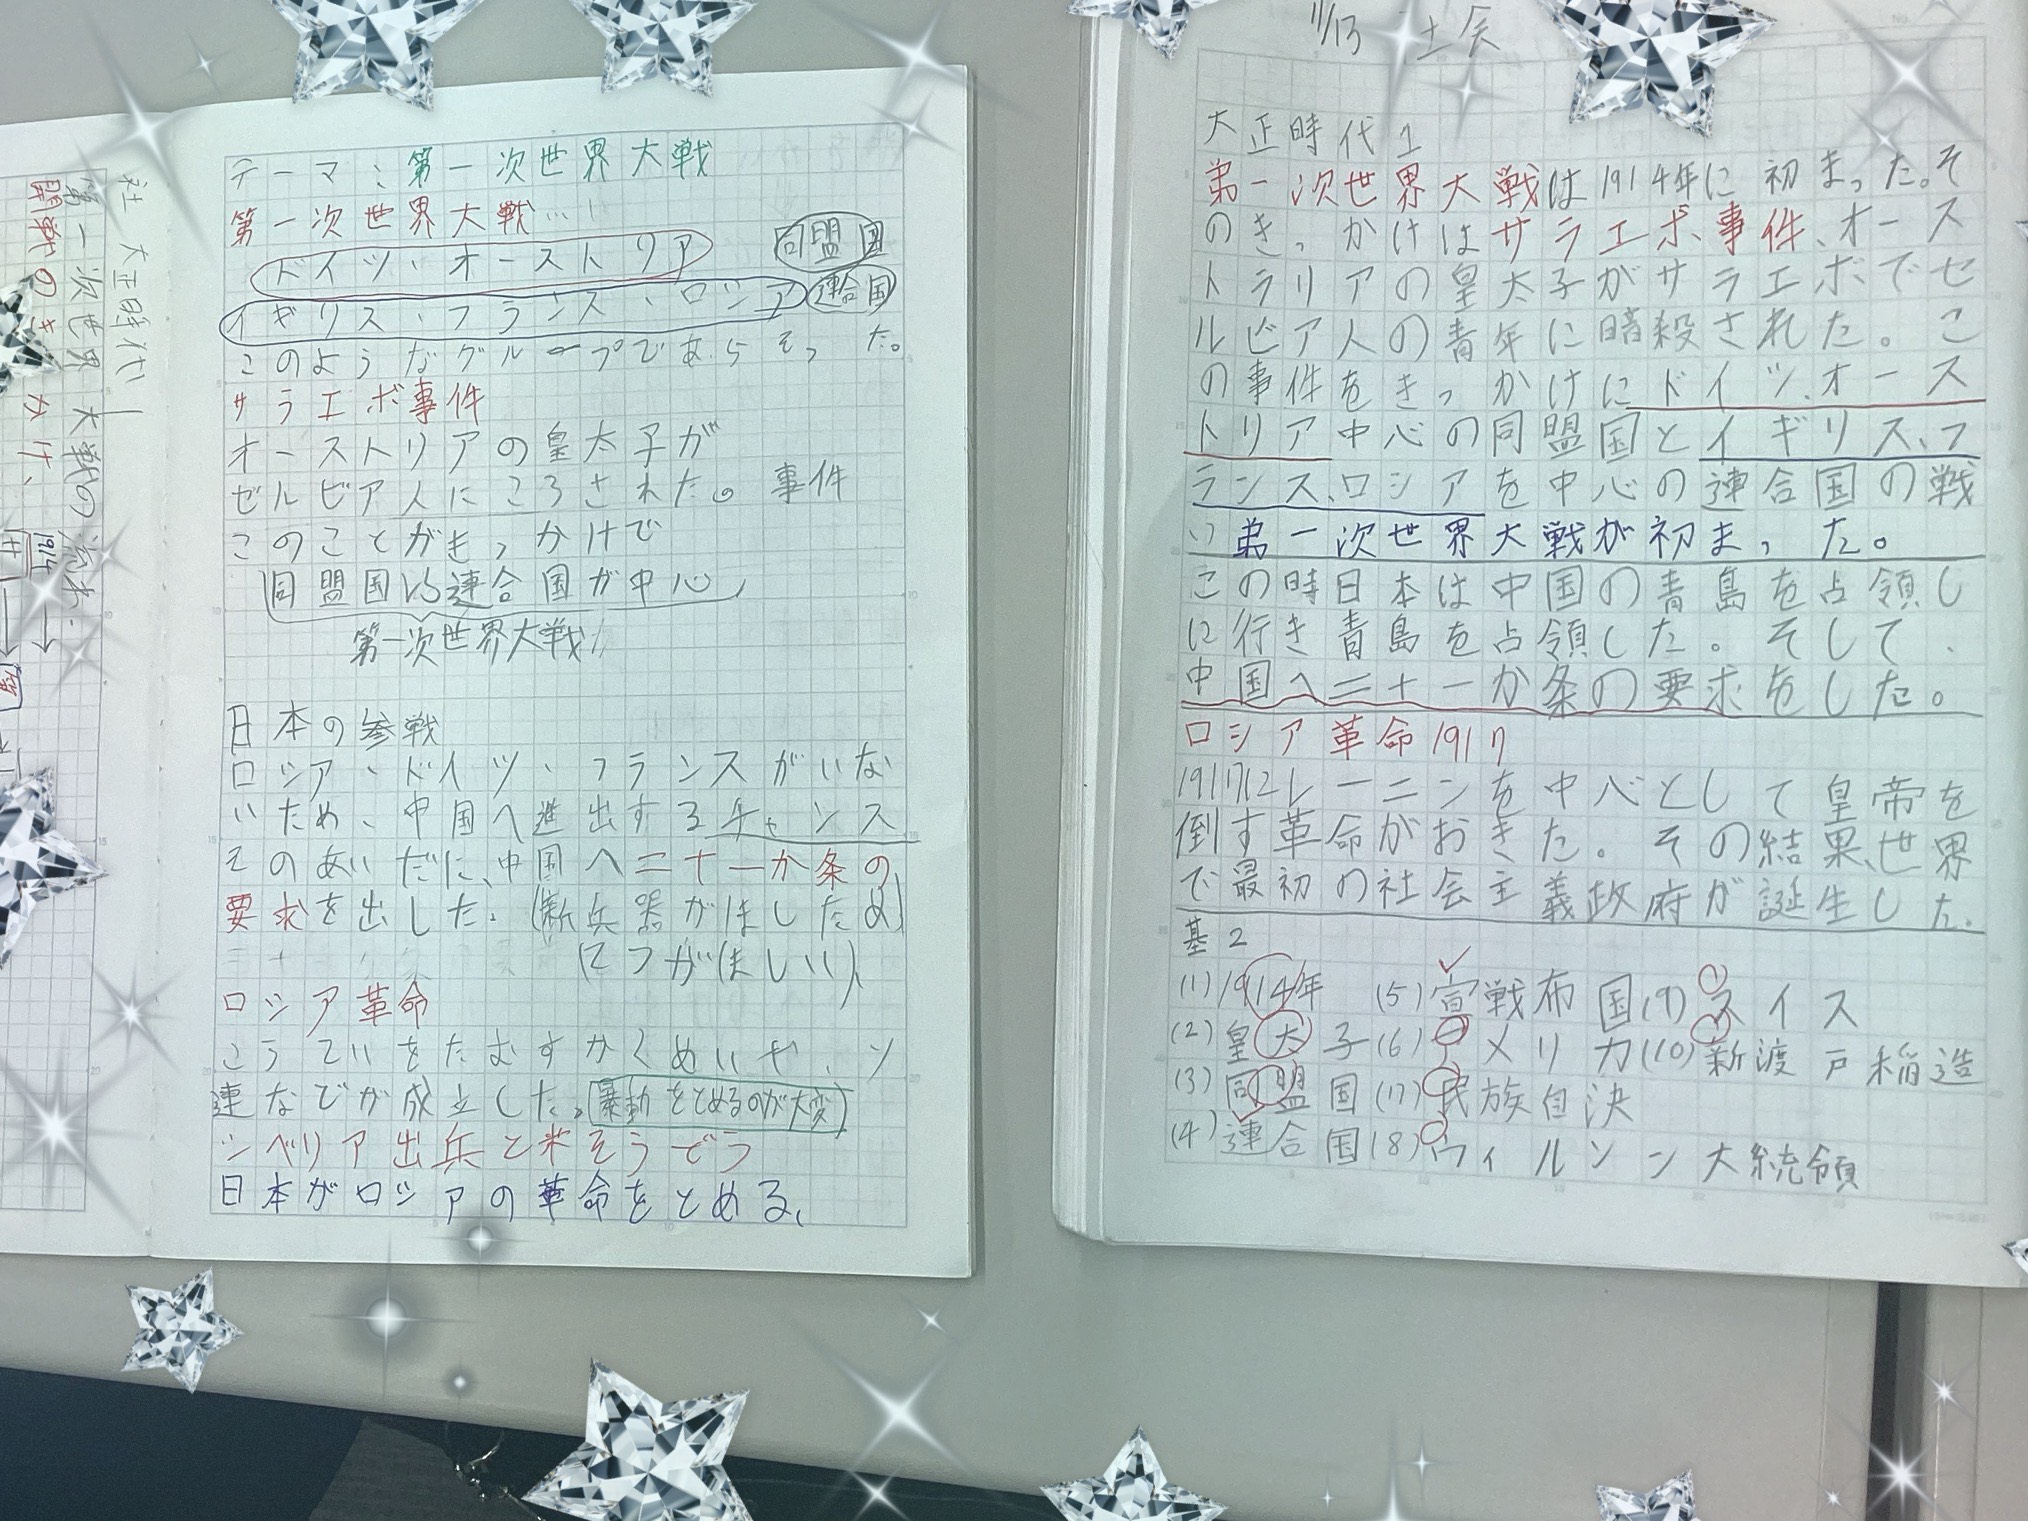 社 大正時代
第一次世界大戦の流れ
開戦のきっかけ、
1914
テーマ:第一次世界大戦
第一次世界大戦…
ドイツ・オーストリア 同盟国
イギリス・フランス・ロシア 連合国
このようなグループであらそった。
サラエボ事件
オーストリアの皇太子が
ゼルビア人にころされた。事件
このことがきっかけで
同盟国VS連合国が中心
第一次世界大戦!!
日本の参戦
ロシア・ドイツ・フランスがいな
いため、中国へ進出するチャンス
そのあいだに、中国へ二十一か条の
要求を出した。(新兵器がほしため)
(てつがほしい)
ロシア革命
こうていをたおすかくめいや、ソ
連などが成立した。(暴動をとめるのが大変)
シベリア出兵と米そうどう
日本がロシアの革命をとめる、
11/13 社会
大正時代1
第一次世界大戦は1914年に初まった。そ
のきっかけはサラエボ事件、オース
トラリアの皇太子がサラエボでセ
ルビア人の青年に暗殺された。こ
の事件をきっかけにドイツ、オース
トリア中心の同盟国とイギリス、フ
ランス、ロシアを中心の連合国の戦
い第一次世界大戦が初まった。
この時日本は中国の青島を占領し
に行き青島を占領した。そして、
中国へ二十一か条の要求をした。
ロシア革命1917
1917にレーニンを中心として皇帝を
倒す革命がおきた。その結果、世界
で最初の社会主義政府が誕生した。
基2
(1)1914年 (5)宣戦布国(9)スイス
(2)皇太子(6)アメリカ(10)新渡戸稲造
(3)同盟国(7)民族自決
(4)連合国(8)ウィルソン大統領